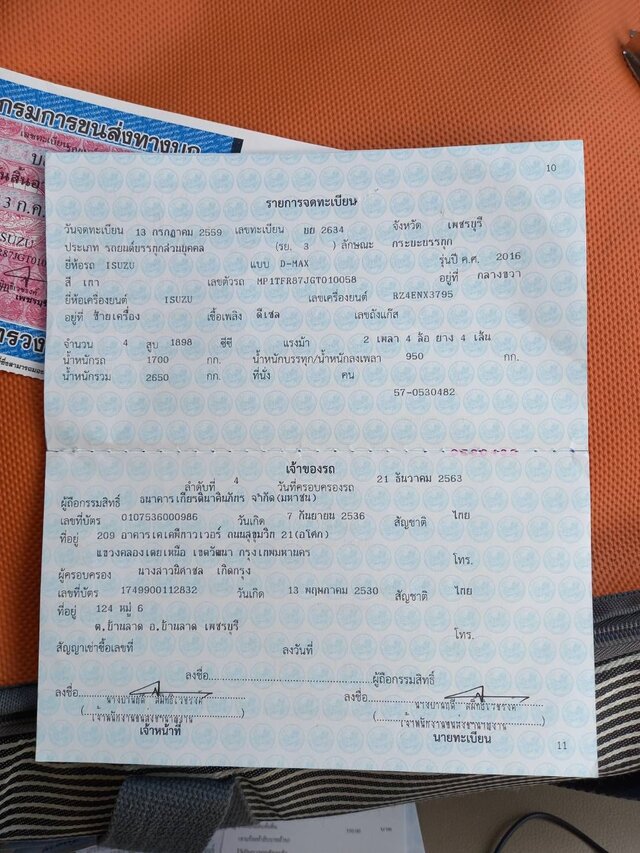 กรมการขนส่งทางบก
13 ก.ค.
ISUZU
10
รายการจดทะเบียน
วันจดทะเบียน 13 กรกฎาคม 2559 เลขทะเบียน บย 2634 จังหวัด เพชรบุรี
ประเภท รถยนต์บรรทุกส่วนบุคคล (รย. 3 ) ลักษณะ กระบะบรรทุก
ยี่ห้อรถ ISUZU แบบ D-MAX รุ่นปี ค.ศ. 2016
สี เทา เลขตัวรถ MP1TFR87JGT010058 อยู่ที่ กลางขวา
ยี่ห้อเครื่องยนต์ ISUZU เลขเครื่องยนต์ RZ4ENX3795
อยู่ที่ ซ้ายเครื่อง เชื้อเพลิง ดีเซล เลขถังแก๊ส
จำนวน 4 สูบ 1898 ซีซี แรงม้า 2 เพลา 4 ล้อ ยาง 4 เส้น
น้ำหนักรถ 1700 กก. น้ำหนักบรรทุก/น้ำหนักลงเพลา 950 กก.
น้ำหนักรวม 2650 กก. ที่นั่ง คน
57-0530482
เจ้าของรถ
ลำดับที่ 4 วันที่ครอบครองรถ 21 ธันวาคม 2563
ผู้ถือกรรมสิทธิ์ ธนาคารเกียรตินาคินภัทร จำกัด(มหาชน)
เลขที่บัตร 0107536000986 วันเกิด 7 กันยายน 2536 สัญชาติ ไทย
ที่อยู่ 209 อาคารเคเคพีทาวเวอร์ ถนนสุขุมวิท 21(อโศก)
แขวงคลองเตยเหนือ เขตวัฒนา กรุงเทพมหานคร
โทร.
ผู้ครอบครอง นางสาวนิศาชล เกิดกรุง
เลขที่บัตร 1749900112832 วันเกิด 13 พฤษภาคม 2530 สัญชาติ ไทย
ที่อยู่ 124 หมู่ 6
ต.บ้านลาด อ.บ้านลาด เพชรบุรี
โทร.
สัญญาเช่าซื้อเลขที่ ลงวันที่
ลงชื่อ ผู้ถือกรรมสิทธิ์
ลงชื่อ ลงชื่อ
เจ้าหน้าที่ นายทะเบียน
11